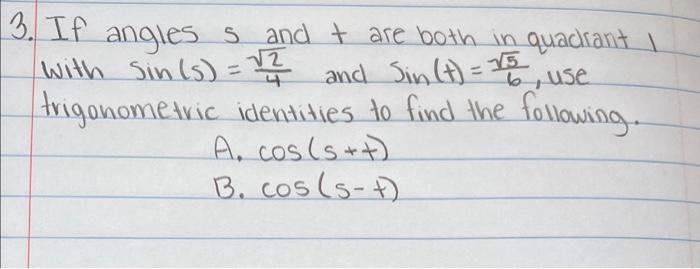 3. If angles s and t are both in quadrant 1
with sin(s) = √2/4 and sin(t) = √5/6, use
trigonometric identities to find the following.
A. cos(s+t)
B. cos(s-t)